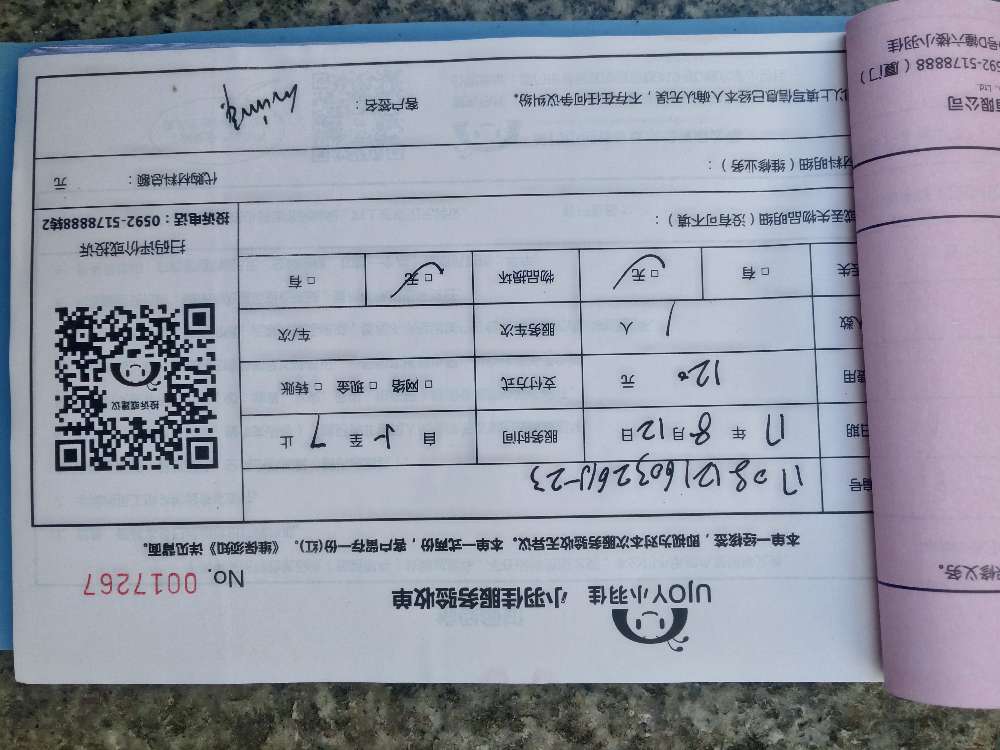 UJOY小羽佳 小羽佳服务验收单
No. 0017267
本单一经核签，即视为对本次服务验收无异议。本单一式两份，客户留存一份(红)。《维保须知》详见背面。
编号
日期 17 年 8 月 12 日 服务时间 自 至 7 止
费用 120 元 支付方式 □ 网络 □ 现金 □ 转账
人数 1 人 服务车次 车/次
丢失 □ 有 □ 无 物品损坏 □ 无 □ 有
或丢失物品明细（没有可不填）：
投诉或建议
扫码评价或投诉
投诉电话：0592-5178888转2
材料明细（维修业务）： 代购材料总额： 元
以上填写信息已经本人确认无误，不存在任何争议纠纷。 客户签名：
修义务。
有限公司
., Ltd.
592-5178888（厦门）
号D幢六楼小羽佳